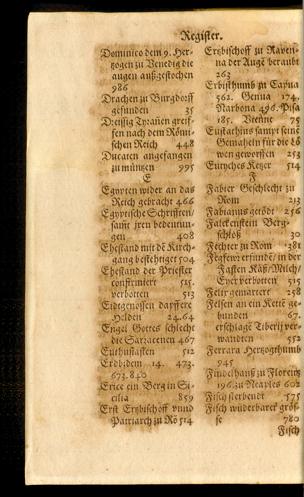 Register.
Dominico dem 9. Her-
tzogen zu Venedig die
augen außgestochen
986
Drachen zu Burgdorff
gefunden 35
Dreissig Tyrañen greif-
fen nach dem Römi-
schen Reich 448
Ducaten angefangen
zu müntzen 995
E
Egypten wider an das
Reich gebracht 466
Egyptische Schrifften/
samt jren bedeutun-
gen 408
Ehestand mit dē Kirch-
gang bestehtiget 504
Ehestand der Priester
confirmiert 515.
verbotten 513
Eidtgenossen dapffere
Helden 24.64
Engel Gottes schlecht
die Sarracenen 467
Enthusiasten 512
Erdbidem 14. 473.
673.840
Erice ein Berg in Si-
cilia 859
Erst Ertzbischoff vnnd
Patriarch zu Rō 514
Ertzbischoff zu Raven-
na der Auge beraubt
263
Erbisthumb zu Capua
562. Genua 174.
Narbona 496. Pisa
185. Vienne 75
Eustachius sampt seine
Gemaheln für die lö
wen geworffen 253
Eutyches Ketzer 514
F
Fabier Geschlecht zu
Rom 213
Fabianus getödt 256
Falckenstein Berg-
schloß 30
Fechter zu Rom 381
Fegfewr erfundē/ in der
Fasten Käß/Milch/
Eyer verbotten 515
Felix gemartert 258
Felsen an ein Kette ge-
bunden 67.
erschlagē Tiberij ver-
wandten 552
Ferrara Hertzogthumb
945
Findelhauß zu Florentz
196. zu Neaples 602
Fisch sterbendt 575
Fisch wunderbarer größ-
se 780
Fisch